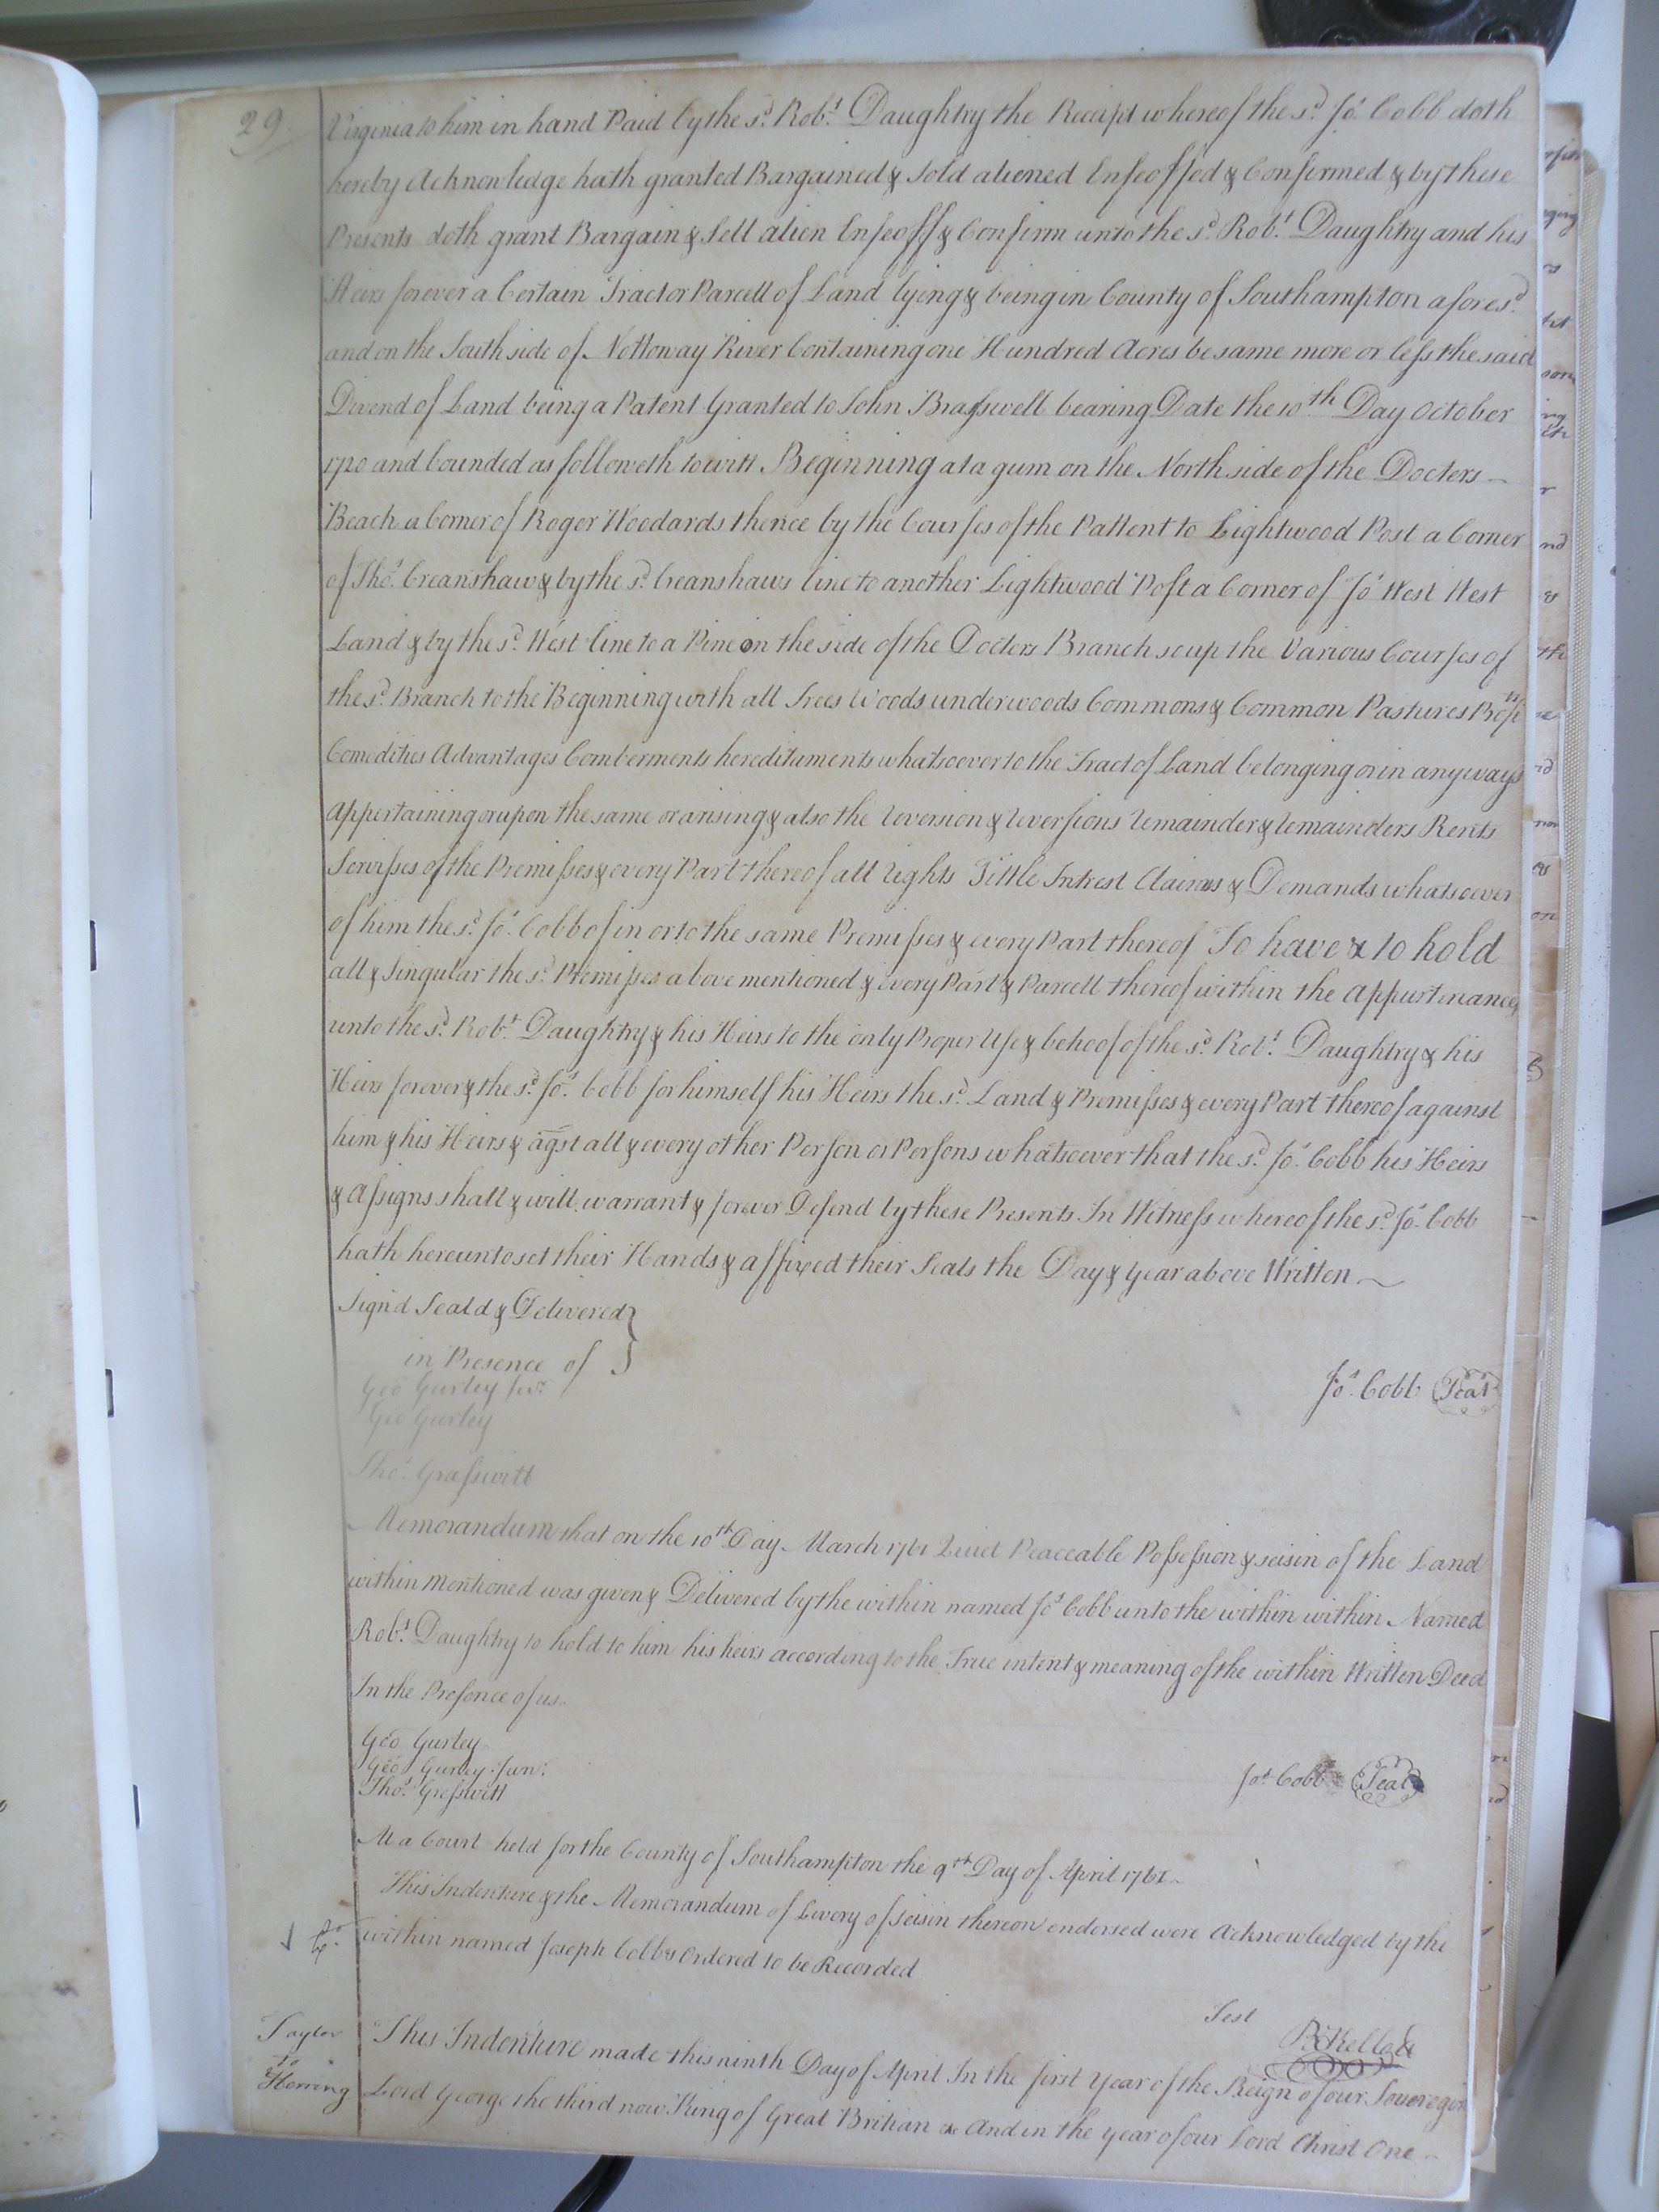 29.
Virginia to him in hand Paid by the sd. Robt. Daughtry the Receipt whereof the sd. Jos. Cobb doth
hereby Acknowledge hath granted Bargained & Sold aliened Enfeoffed & Confirmed & by these
Presents doth grant Bargain & Sell alien Enfeoff & Confirm unto the sd. Robt. Daughtry and his
Heirs forever a Certain Tract or Parcell of Land lying & being in County of Southampton afores'd.
and on the South side of Nottoway River Containing one Hundred Acres be same more or less the said
Divend of Land being a Patent Granted to John Brasswell bearing Date the 10th Day October
1720 and bounded as followeth to witt Beginning at a gum on the North side of the Docters
Beach a Corner of Roger Woodards thence by the Courses of the Pattent to Lightwood Post a Corner
of Thos. Creanshaw & by the sd. Creanshaws line to another Lightwood Post a Corner of Jos West West
Land & by the sd. West line to a Pine on the side of the Docters Branch so up the Various Courses of
the sd. Branch to the Beginning with all Trees Woods underwoods Commons & Common Pastures
Comedities Advantages Comberments heredituments whatsoever to the Tract of Land belonging or in anyways
Appertaining or upon the same or arising & also the reversion & reversions remainder & remainders Rents
Servisses of the Premisses & every Part thereof all rights Tittle Intrest Claims & Demands whatsoever
of him the sd. Jos. Cobb of in or to the same Premisses & every Part thereof To have & to hold
all & Singular the sd. Premisses above mentioned & every Part & Parcell thereof within the appurtinances
unto the sd. Robt. Daughtry & his Heirs to the only Proper Use & behoof of the sd. Robt. Daughtry & his
Heirs forever & the sd. Jos. Cobb for himself his Heirs the sd. Land & Premisses & every Part thereof against
him & his Heirs & agst all & every other Person or Persons whatsoever that the sd. Jos. Cobb his Heirs
& Assigns shall & will warrant & forever Defend by these Presents. In Witness whereof the sd. Jos. Cobb
hath hereunto set their Hands & affixed their Seals the Day & Year above Written
Sign'd Seald & Delivered }
in Presence of
Geo Gurley Junr.
Jos. Cobb Seal
Geo Gurley
Thos. Grasswitt
Memorandum that on the 10th Day March 1761 Quiet Peaceable Possession & seisin of the Land
within Mentioned was given & Delivered by the within named Jos Cobb unto the within within Named
Robt. Daughtry to hold to him his heirs according to the True intent & meaning of the within Written Deed
In the Presence of us
Geo Gurley
Geo Gurley Junr.
Jos. Cobb Seal
Thos. Gresswitt
At a Court held for the County of Southampton the 9th Day of April 1761
This Indenture & the Memorandum of Livery of seisin thereon endorsed were Acknowledged by the
within named Joseph Cobb & Ordered to be Recorded
Test
Taylor
to
Herring
This Indenture made this ninth Day of April In the first Year of the Reign of our Sovereign
Lord George the third now King of Great Britian & And in the year of our Lord Christ One